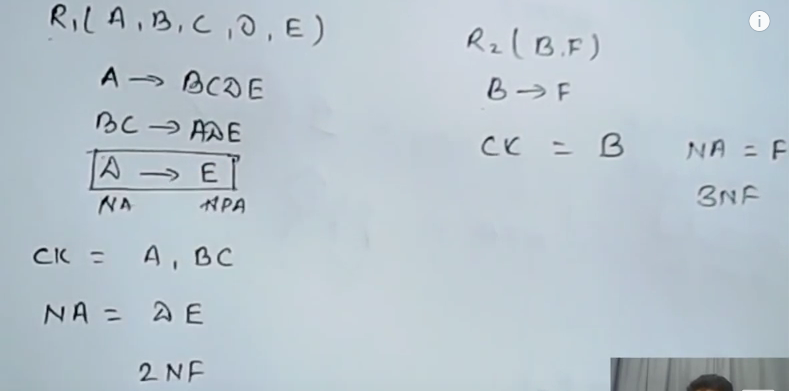 R₁( A, B, C, D, E )
A → BCDE
BC → ADE
D → E
NA NPA
CK = A, BC
NA = DE
2NF
R₂ ( B.F )
B → F
CK = B NA = F
3NF